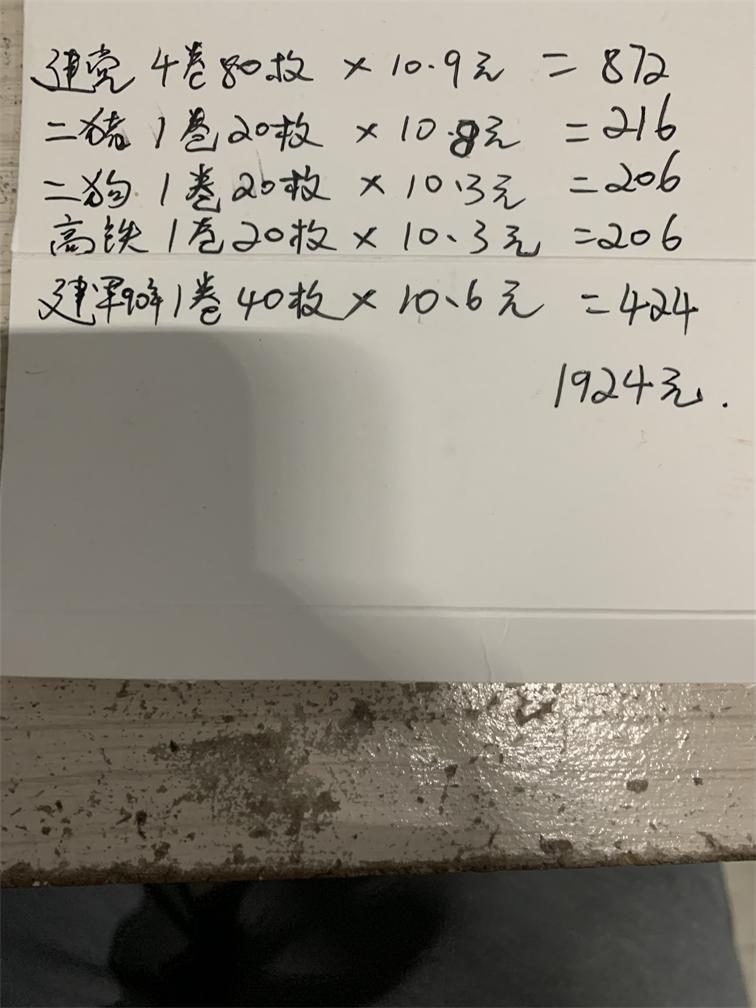 建党 4卷80枚 × 10.9元 = 872
二猪 1卷20枚 × 10.8元 = 216
二狗 1卷20枚 × 10.3元 = 206
高铁 1卷20枚 × 10.3元 = 206
建军90年 1卷 40枚 × 10.6元 = 424
1924元.